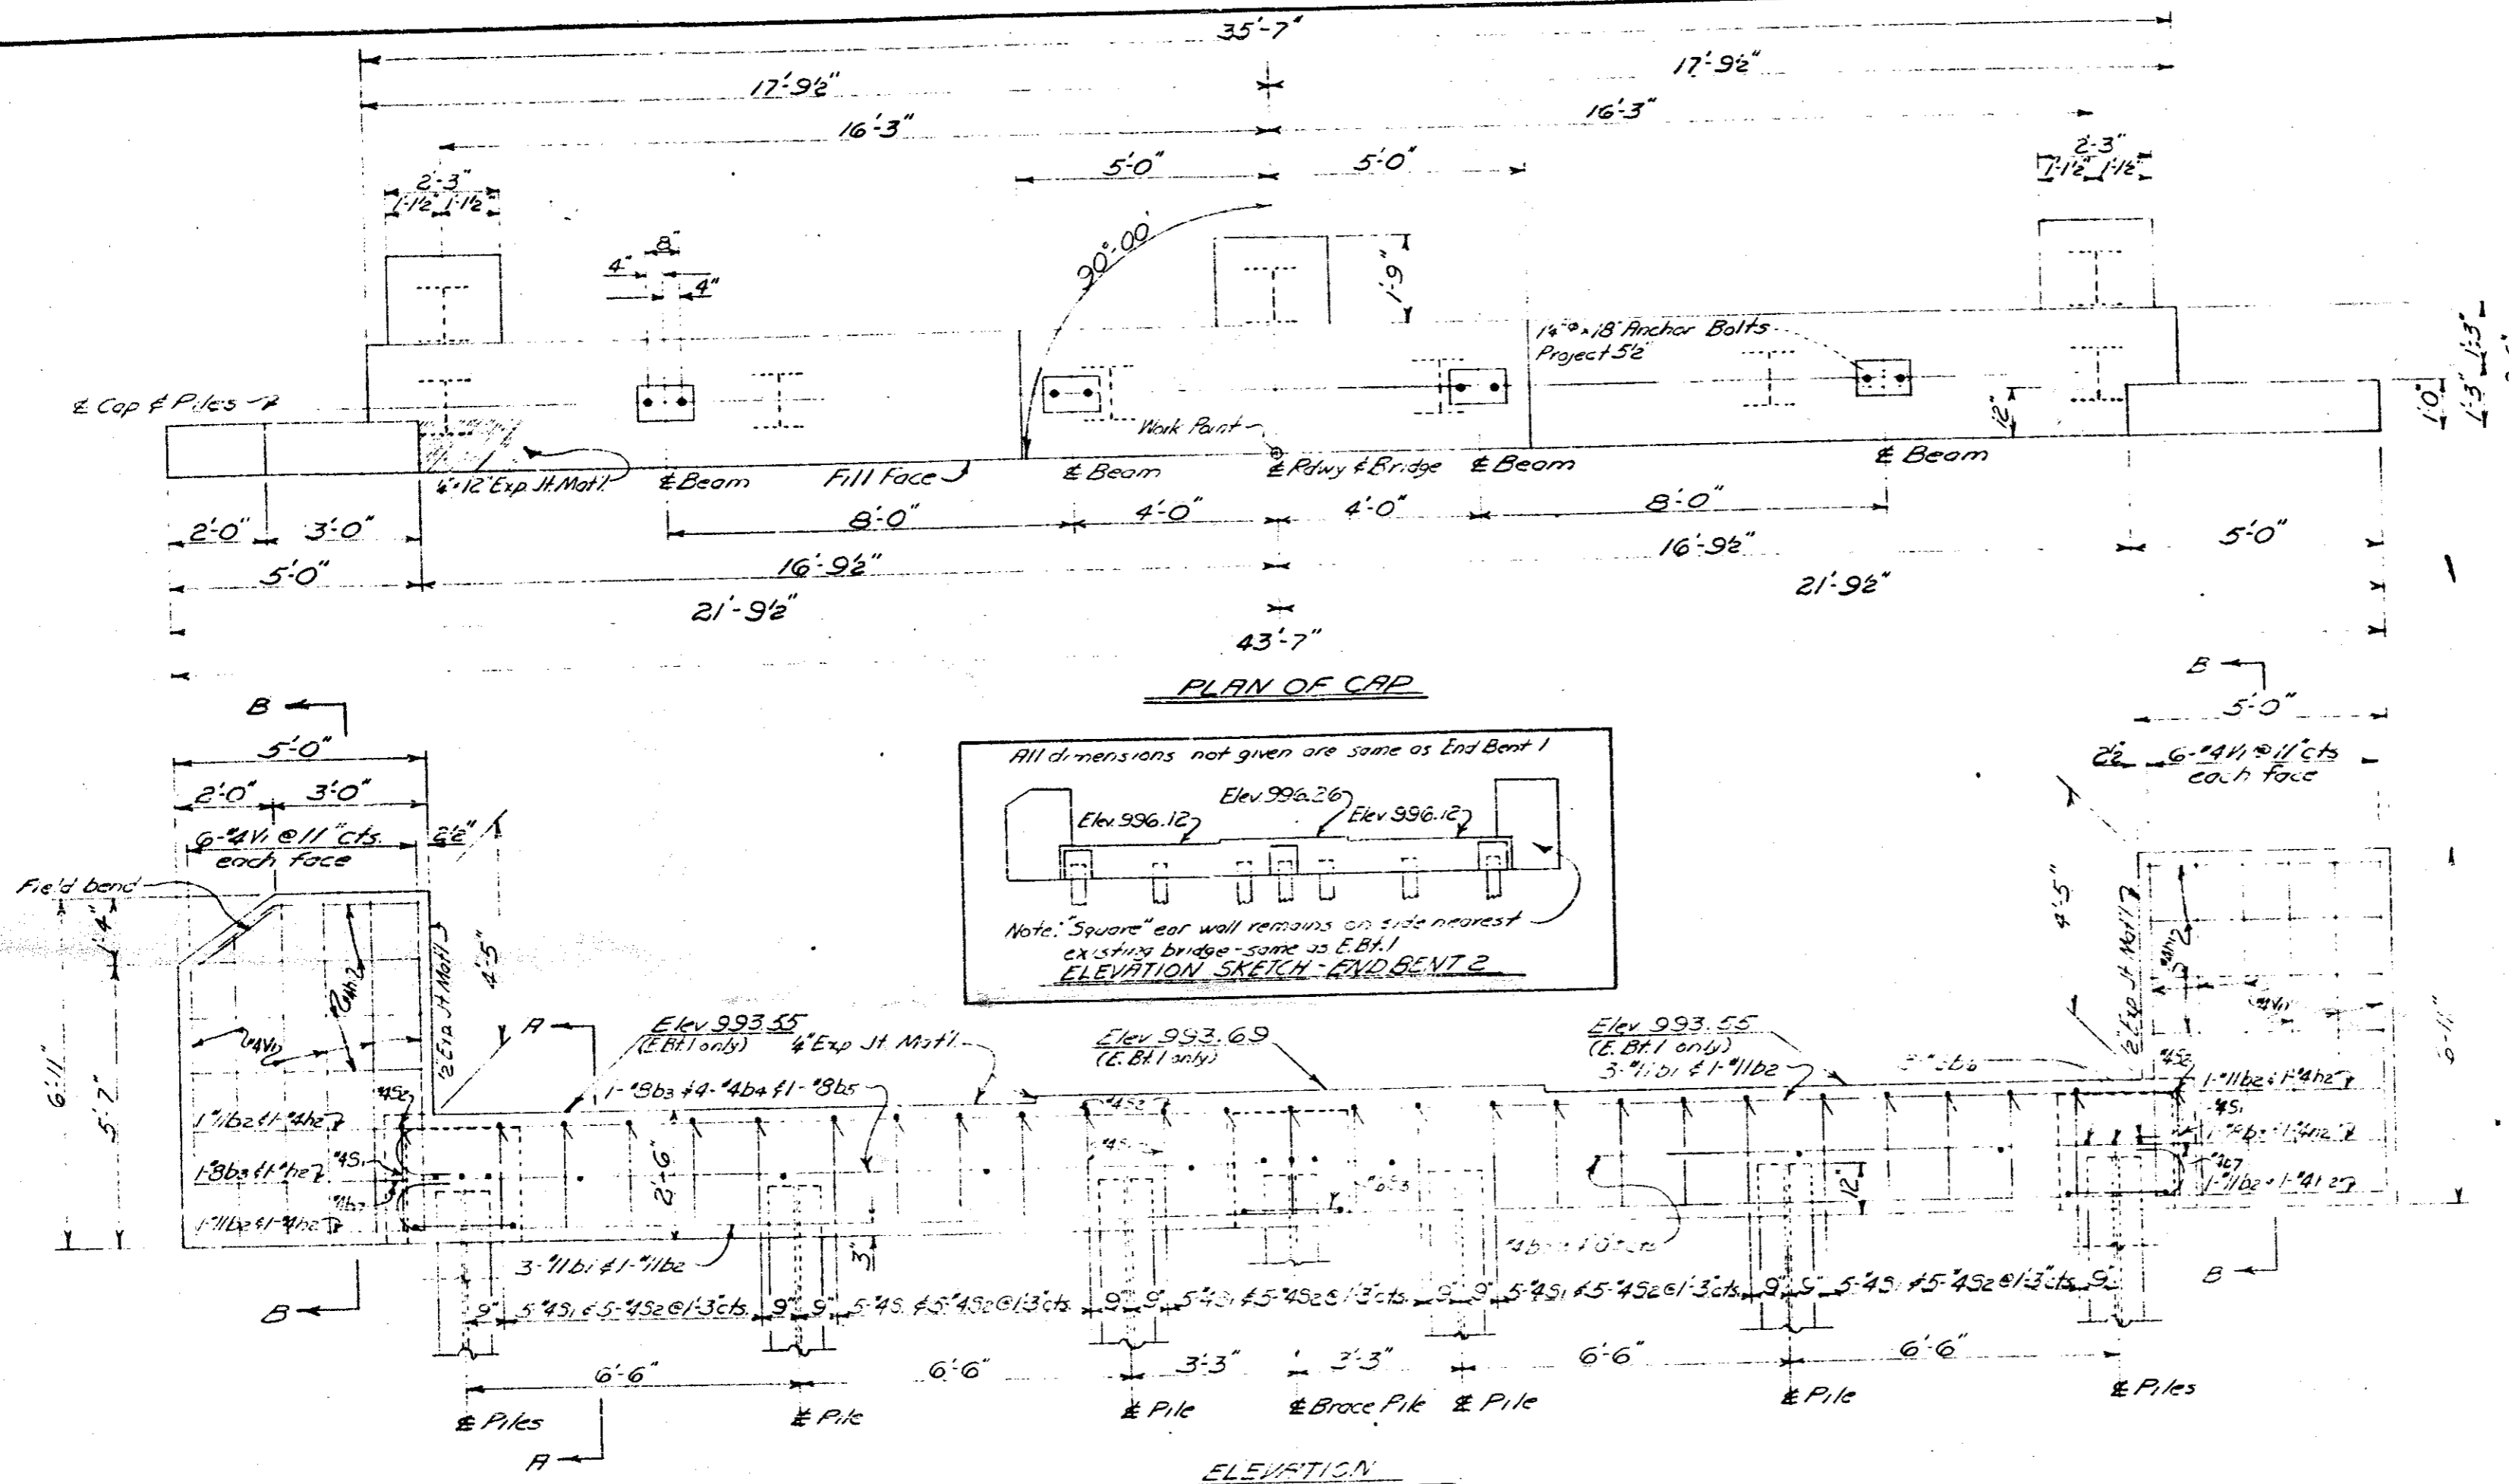 35'-7"
17'-9½" 17'-9½"
16'-3" 16'-3"
5'-0" 5'-0"
2'-3" 2'-3"
1'-1½" 1'-1½" 1'-1½" 1'-1½"
8"
4" 4"
90°-00'
1'-9"
1¼"ø x 18" Anchor Bolts
Project 5½"
℄ Cap & Piles
Work Point
12"
1'-0" 1'-3" 1'-3"
¼" x 12" Exp. Jt. Mat'l.
℄ Beam
Fill Face
℄ Beam
℄ Rdwy & Bridge
℄ Beam
℄ Beam
2'-0" 3'-0" 8'-0" 4'-0" 4'-0" 8'-0"
5'-0" 16'-9½" 16'-9½" 5'-0"
21'-9½" 21'-9½"
43'-7"
PLAN OF CAP
B B
5'-0" 5'-0"
2'-0" 3'-0"
6-#4V1 @ 11" cts.
each face
2½"
2½" 6-#4V1 @ 11" cts
each face
Field bend
1'-4"
5'-7"
6'-11"
#4h2
#4V1
½" Exp. Jt. Mat'l
4'-5"
All dimensions not given are same as End Bent 1
Elev. 996.12 Elev. 996.26 Elev. 996.12
Note: "Square" ear wall remains on side nearest
existing bridge - same as E.Bt.1
ELEVATION SKETCH - END BENT 2
4'-5"
½" Exp. Jt. Mat'l
#4h2
#4V1
6'-11"
A
Elev 993.55
(E.Bt.1 only)
¼" Exp Jt. Mat'l.
Elev 993.69
(E.Bt.1 only)
Elev 993.55
(E.Bt.1 only)
3-#11b1 & 1-#11b2
1-#8b3 & 4-#4b4 & 1-#8b5
#4S2
#4S2
#4S2
1-#11b2 & 1-#4h2
1-#11b2 & 1-#4h2
#4S1
#4S1
#4S1
1-#8b3 & 1-#4h2
1-#8b3 & 1-#4h2
1-#11b2 & 1-#4h2
1-#11b2 & 1-#4h2
2'-6"
12"
3"
3-#11b1 & 1-#11b2
B B
9" 5-#4S1 & 5-#4S2 @ 1'-3" cts. 9" 9" 5-#4S1 & 5-#4S2 @ 1'-3" cts. 9" 9" 5-#4S1 & 5-#4S2 @ 1'-3" cts. 9" 9" 5-#4S1 & 5-#4S2 @ 1'-3" cts. 9" 9" 5-#4S1 & 5-#4S2 @ 1'-3" cts. 9"
6'-6" 6'-6" 3'-3" 3'-3" 6'-6" 6'-6"
℄ Piles ℄ Pile ℄ Pile ℄ Brace Pile ℄ Pile ℄ Pile ℄ Piles
A
ELEVATION